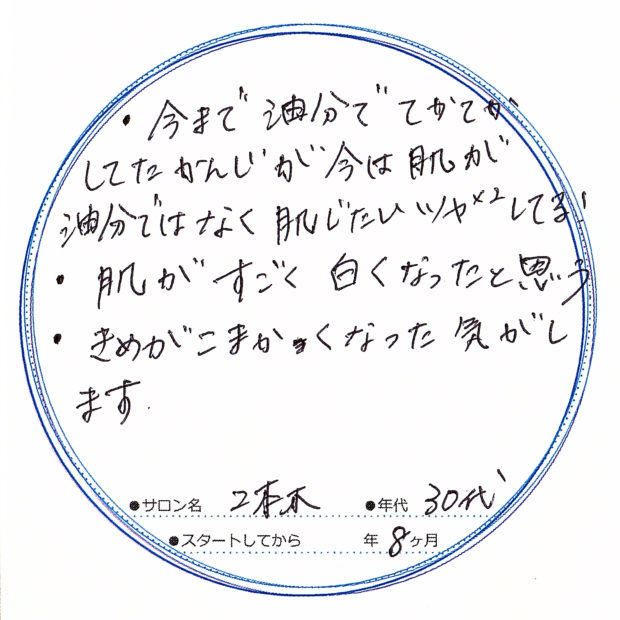 ・今まで油分でてかてか
してたかんじが今は肌が
油分ではなく肌じたいツヤ×2してる!
・肌がすごく白くなったと思う
・きめがこまかくなった気がし
ます.
●サロン名 二本木 ●年代 30代
●スタートしてから 年 8ヶ月